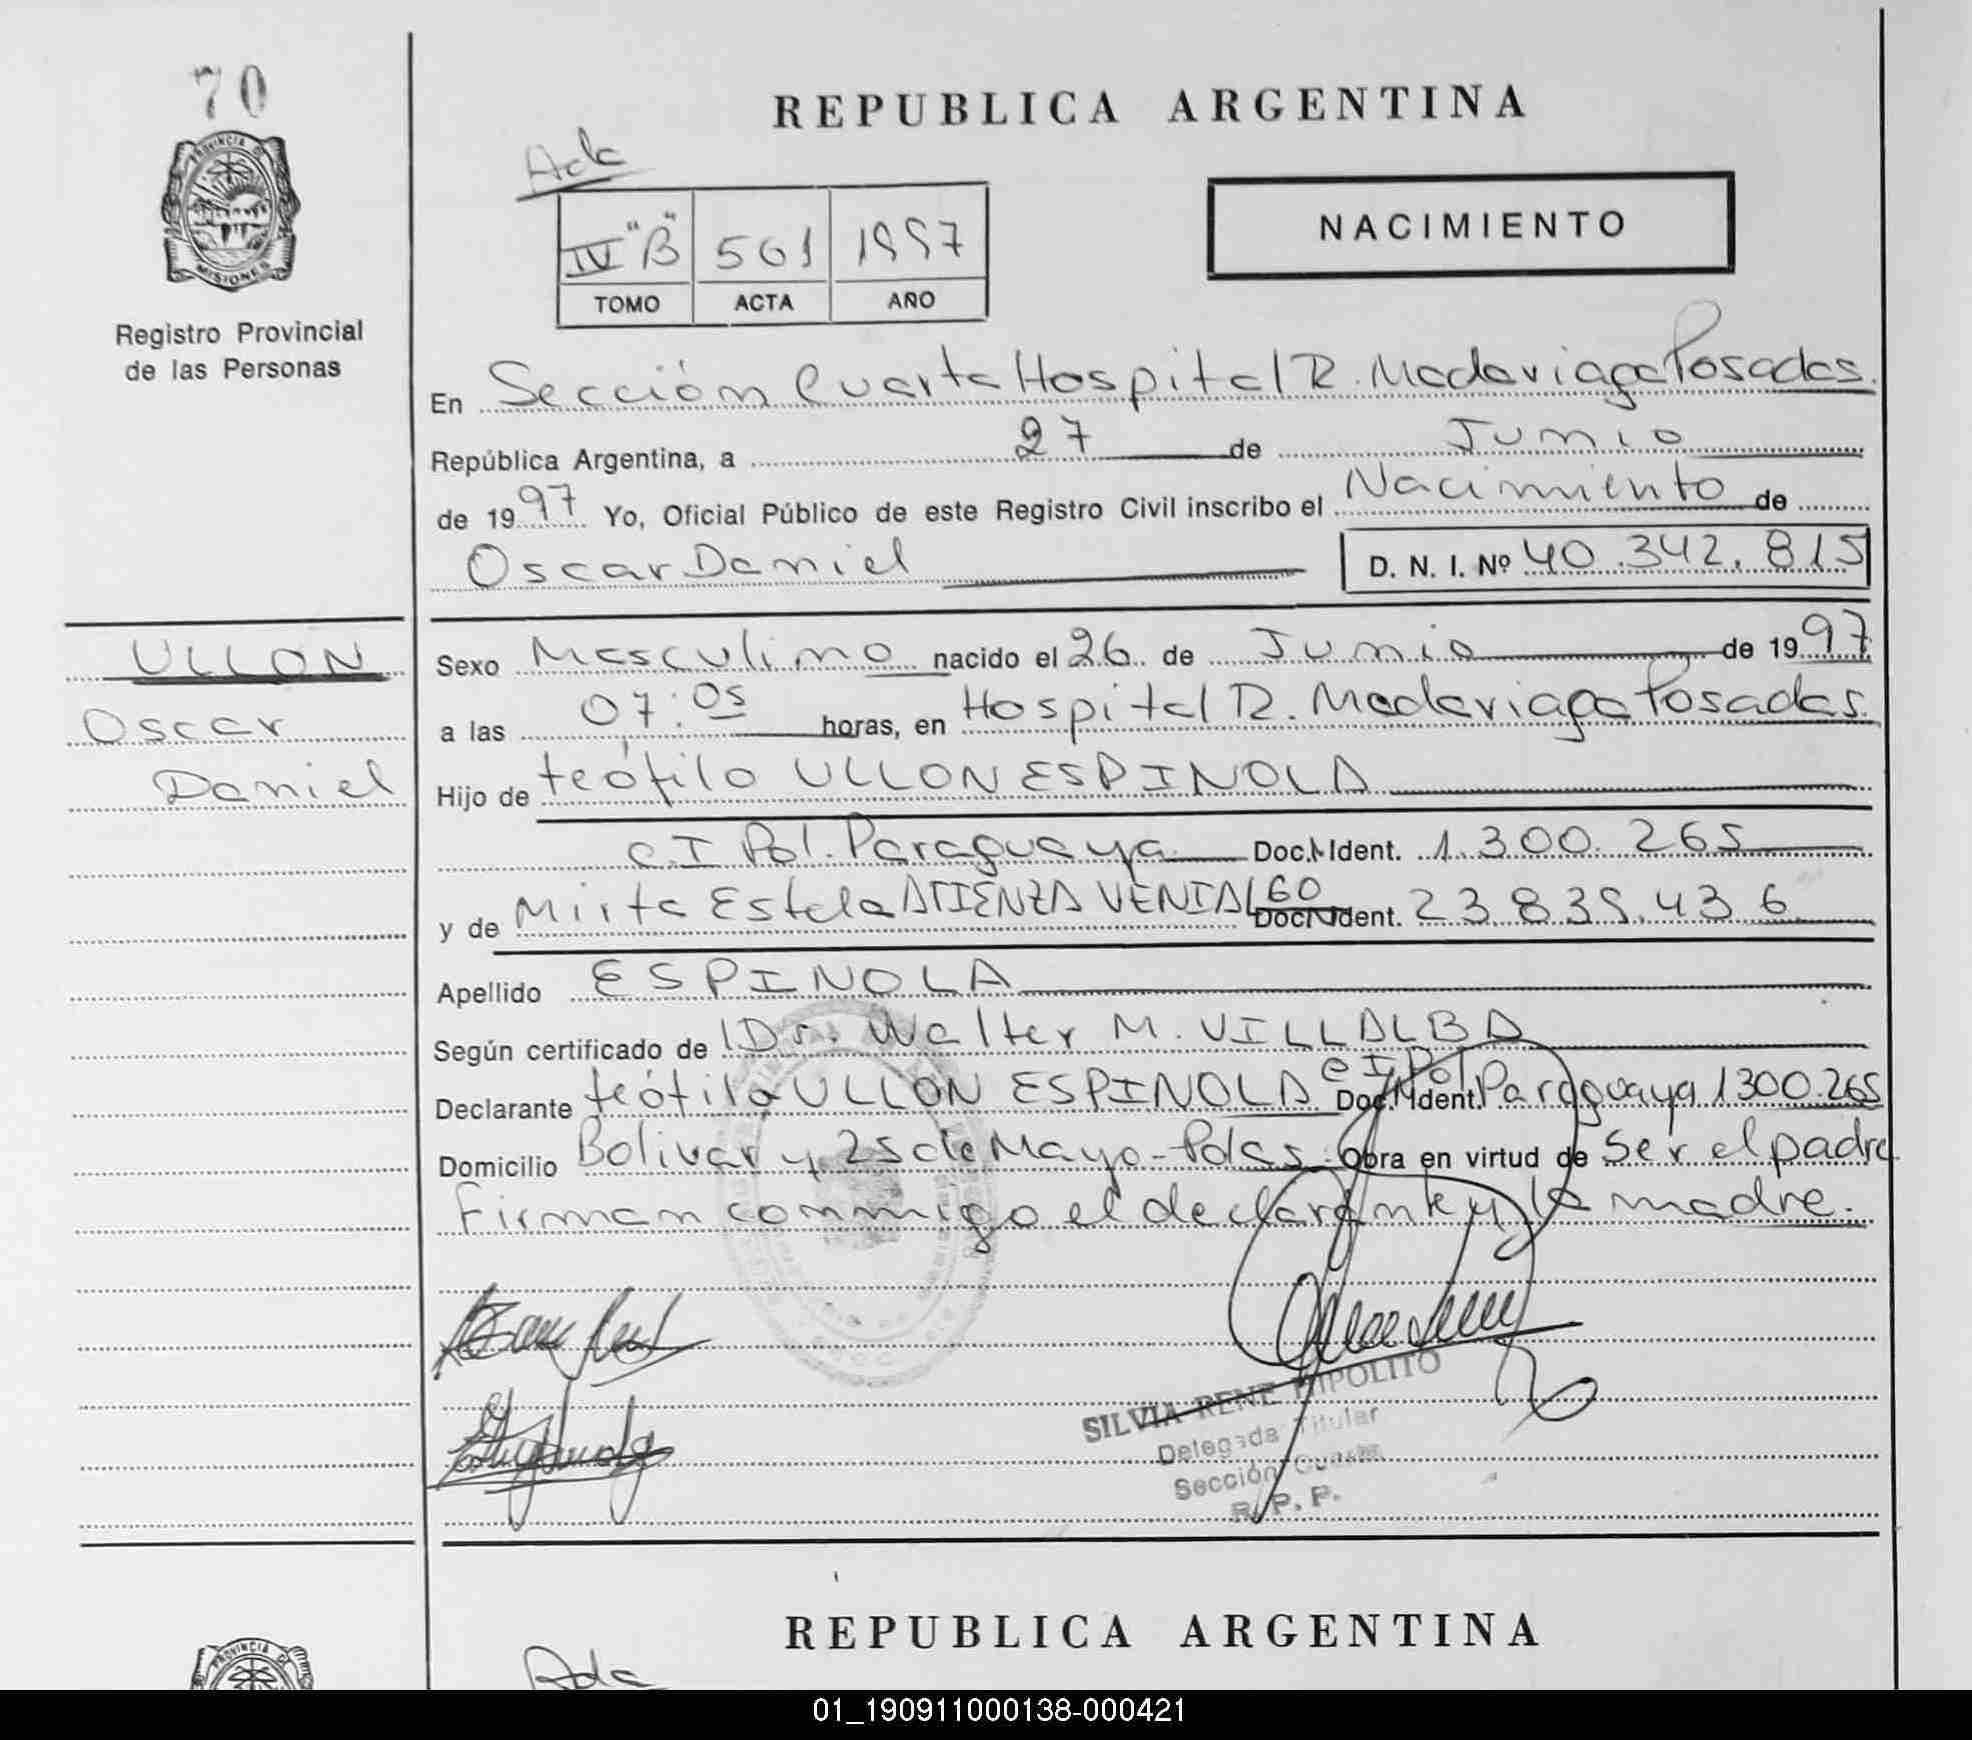 70
REPUBLICA ARGENTINA
Ada
PROVINCIA DE
MISIONES
IV "B" 561 1997
TOMO ACTA AÑO
NACIMIENTO
Registro Provincial
de las Personas
En Sección Cuarta Hospital R. Madariaga Posadas.
República Argentina, a 27 de Junio
de 1997 Yo, Oficial Público de este Registro Civil inscribo el Nacimiento de
Oscar Daniel D. N. I. Nº 40.342.815
ULLON
Oscar
Daniel
Sexo Masculino nacido el 26 de Junio de 1997
a las 07:05 horas, en Hospital R. Madariaga Posadas.
Hijo de teófilo ULLON ESPINOLA
C.I Pol. Paraguaya Doc. Ident. 1.300.265
y de Mirta Estela ATIENZA VENIALGO Doc. Ident. 23.839.436
Apellido ESPINOLA
Según certificado de Dr. Walter M. VILLALBA
Declarante teófilo ULLON ESPINOLA C.I Pol Doc. Ident. Paraguaya 1300.265
Domicilio Bolivar y 25 de Mayo - Pdas. Obra en virtud de Ser el padre
Firman conmigo el declarante y la madre.
SILVIA RENE HIPOLITO
Delegada Titular
Sección Cuarta
R. P. P.
REPUBLICA ARGENTINA
PROVINCIA DE
Ada
01_190911000138-000421